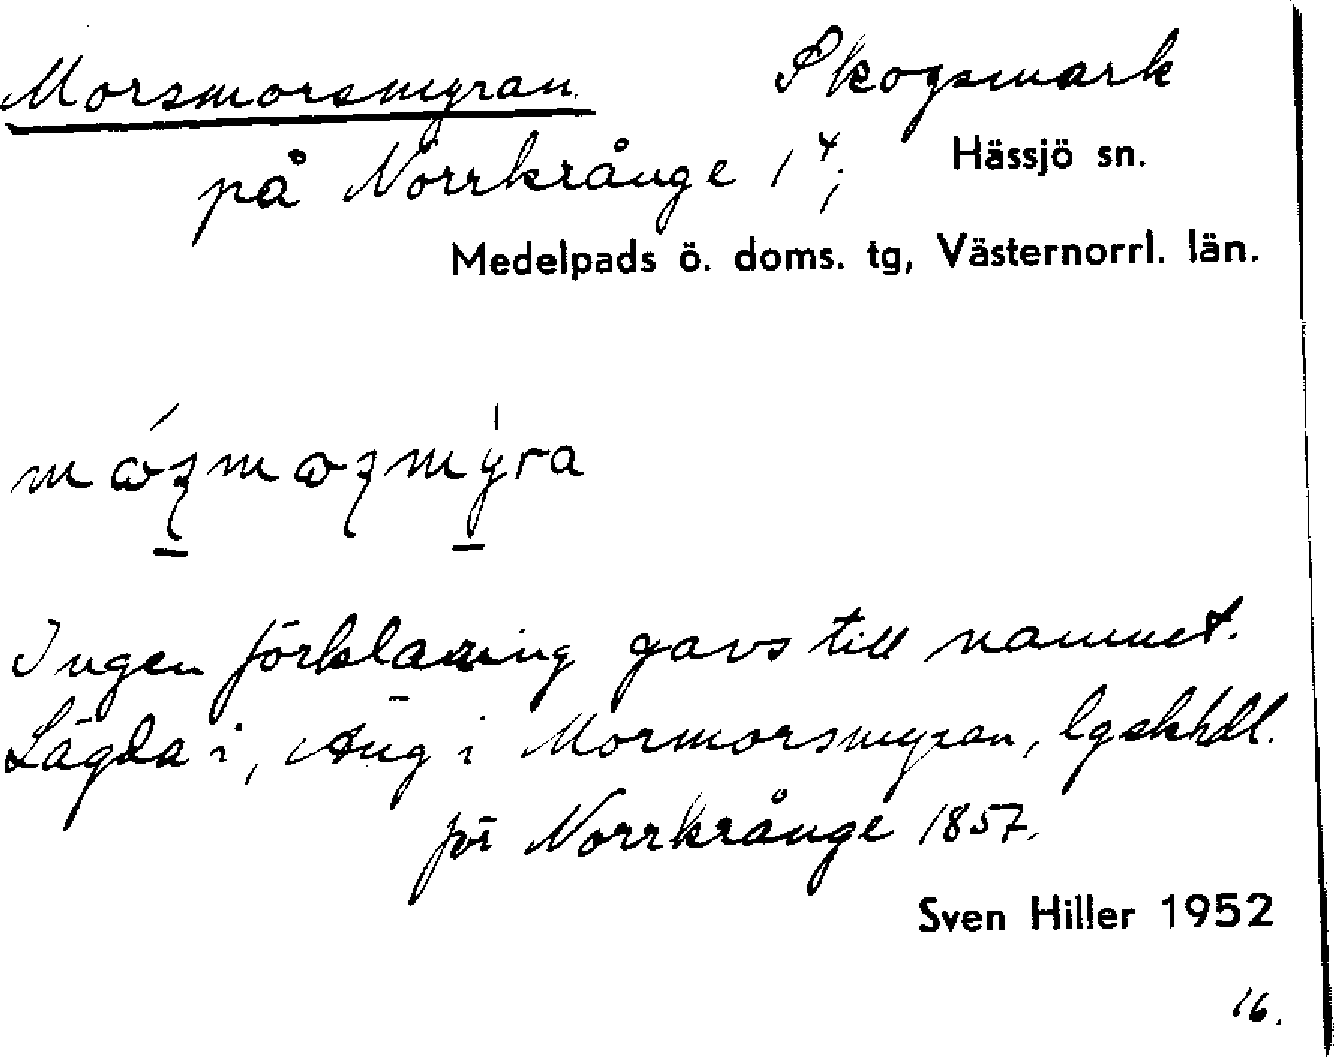 Morsmorsmyran Skogsmark
på Norrkrånge 1⁴; Hässjö sn.
Medelpads ö. doms. tg, Västernorrl. län.
Ingen förklaring gavs till namnet.
Lägda i, Äng i Mormorsmyran, lgskhdl.
för Norrkrånge 1857.
Sven Hiller 1952
16.